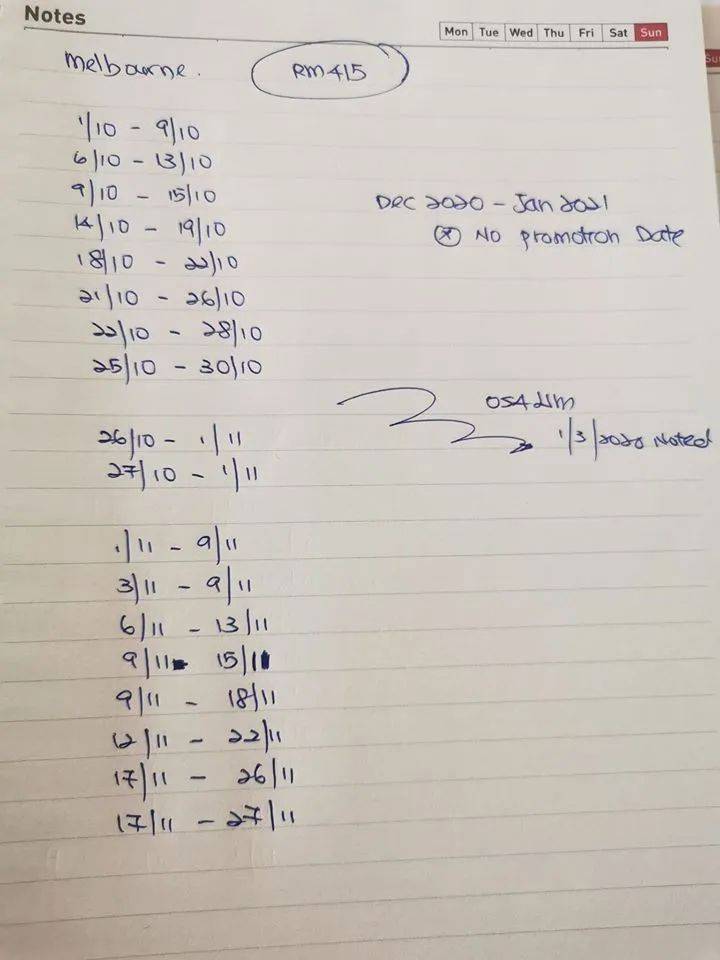 Notes
Mon Tue Wed Thu Fri Sat Sun
Melbourne.
RM415
1/10 - 9/10
6/10 - 13/10
9/10 - 15/10
14/10 - 19/10
18/10 - 22/10
21/10 - 26/10
22/10 - 28/10
25/10 - 30/10
Dec 2020 - Jan 2021
* No promotion Date
26/10 - 1/11
27/10 - 1/11
1/3/2020 Noted
1/11 - 9/11
3/11 - 9/11
6/11 - 13/11
9/11 - 15/11
9/11 - 18/11
12/11 - 22/11
17/11 - 26/11
17/11 - 27/11